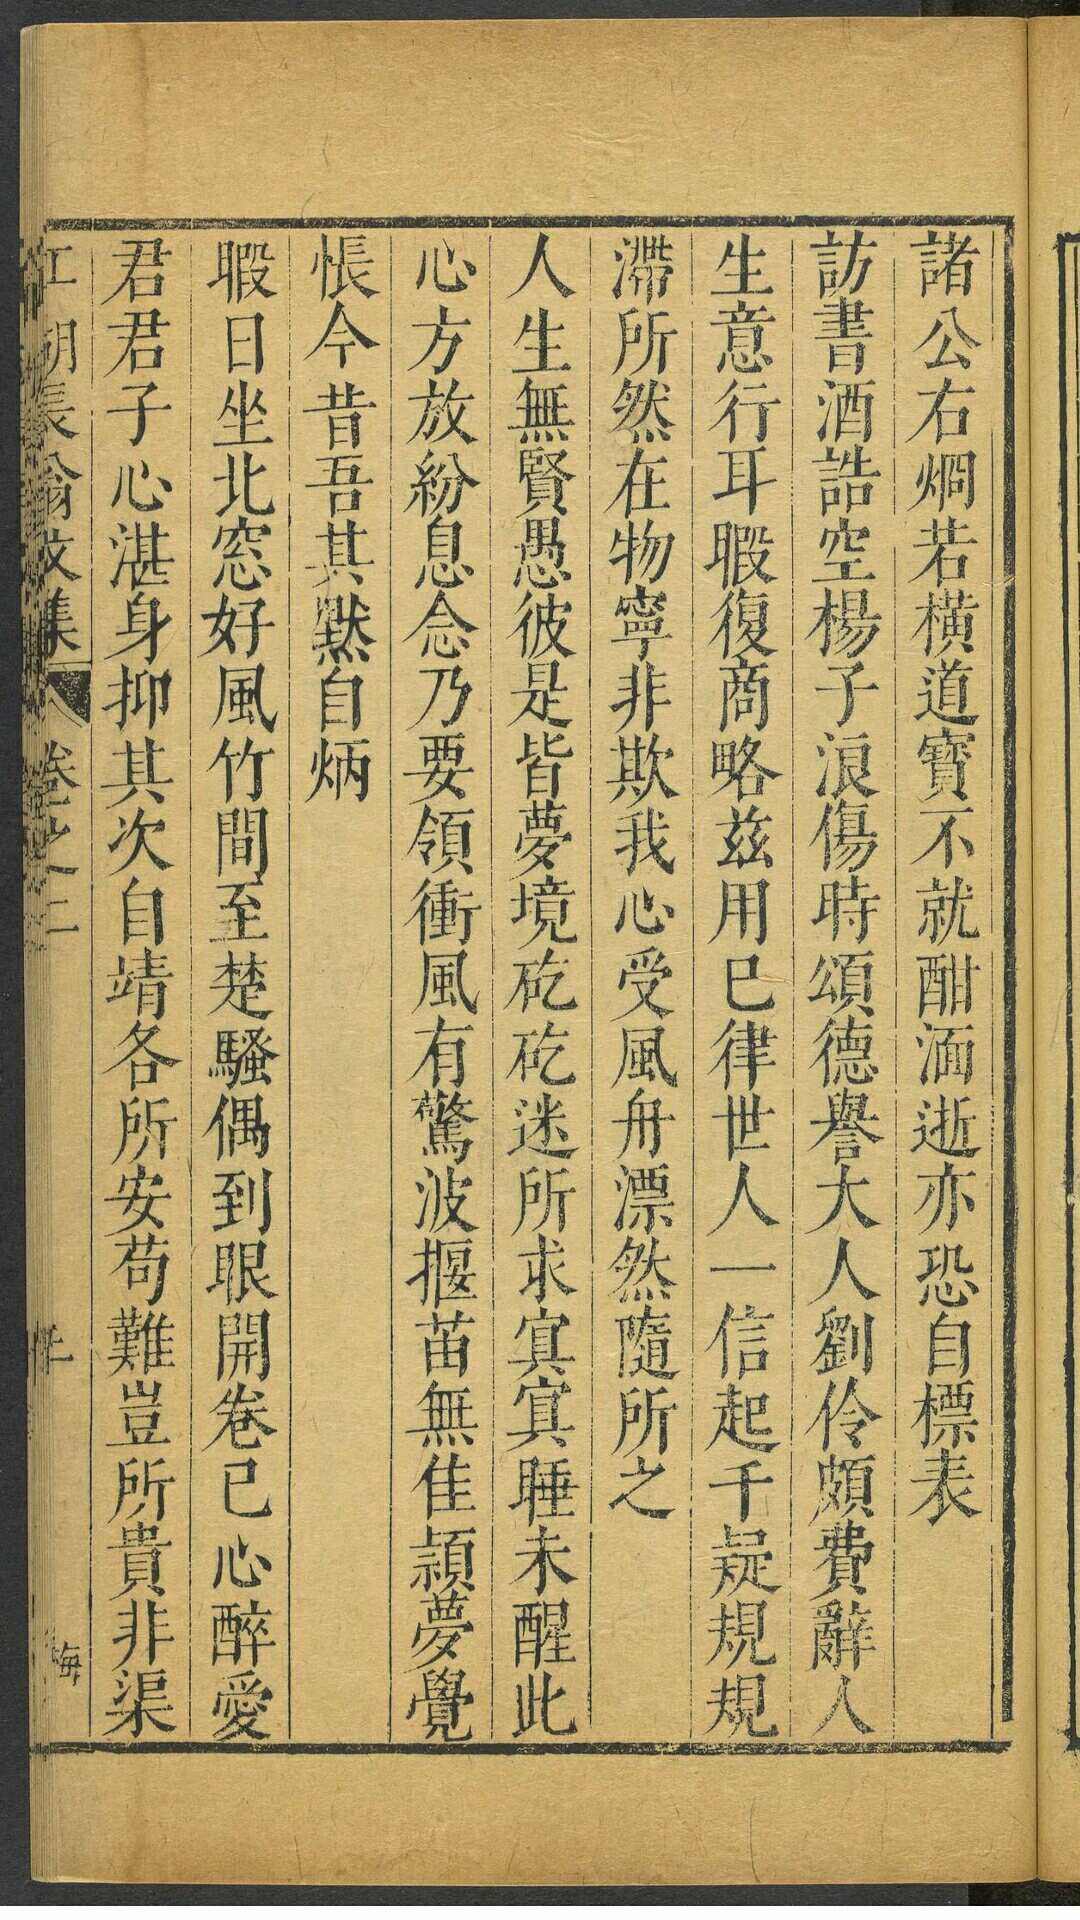 諸公右烱若橫道寳不就酣湎逝亦恐自標表
訪書酒誥空楊子浪傷時頌德譽大人劉伶頗費辭人
生意行耳暇復商略玆用巳律世人一信起千疑規規
滯所然在物寧非欺我心受風舟漂然隨所之
人生無賢愚彼是皆夢境矻矻迷所求寘寘睡未醒此
心方放紛息念乃要領衝風有驚波揠苗無佳頴夢覺
悵今昔吾其默自炳
暇日坐北窓好風竹間至楚騷偶到眼開卷已心醉愛
君君子心湛身抑其次自靖各所安苟難豈所貴非渠
江湖長翁文集 卷之二